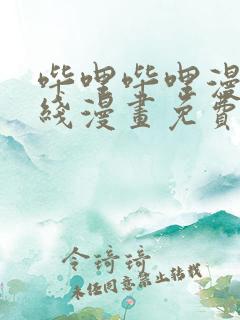 哔哩哔哩漫
线漫畫免費
令琦琦
未经同意禁止转载